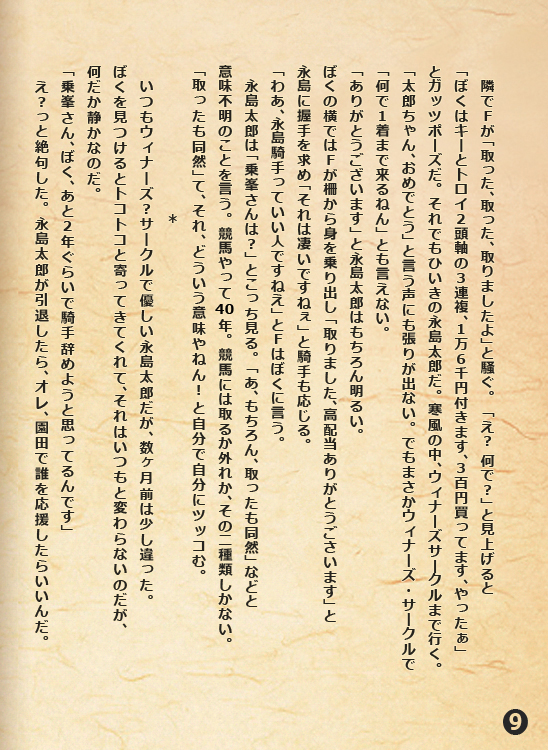 隣でＦが「取った、取った、取りましたよ」と騒ぐ。「え？何で？」と見上げると
「ぼくはキーとトロイ２頭軸の３連複、１万６千円付きます、３百円買ってます、やったぁ」
とガッツポーズだ。それでもひいきの永島太郎だ。寒風の中、ウィナーズサークルまで行く。
「太郎ちゃん、おめでとう」と言う声にも張りが出ない。でもまさかウィナーズ・サークルで
「何で１着まで来るねん」とも言えない。
「ありがとうございます」と永島太郎はもちろん明るい。
ぼくの横ではＦが柵から身を乗り出し「取りました、高配当ありがとうございます」と
永島に握手を求め「それは凄いですねぇ」と騎手も応じる。
「わあ、永島騎手っていい人ですねえ」とＦはぼくに言う。
永島太郎は「乗峯さんは？」とこっち見る。「あ、もちろん、取ったも同然」などと
意味不明のことを言う。競馬やって40年。競馬には取るか外れか、その二種類しかない。
「取ったも同然」て、それ、どういう意味やねん！と自分で自分にツッコむ。
＊
いつもウィナーズ？サークルで優しい永島太郎だが、数ヶ月前は少し違った。
ぼくを見つけるとトコトコと寄ってきてくれて、それはいつもと変わらないのだが、
何だか静かなのだ。
「乗峯さん、ぼく、あと２年ぐらいで騎手辞めようと思ってるんです」
え？っと絶句した。永島太郎が引退したら、オレ、園田で誰を応援したらいいんだ。
9